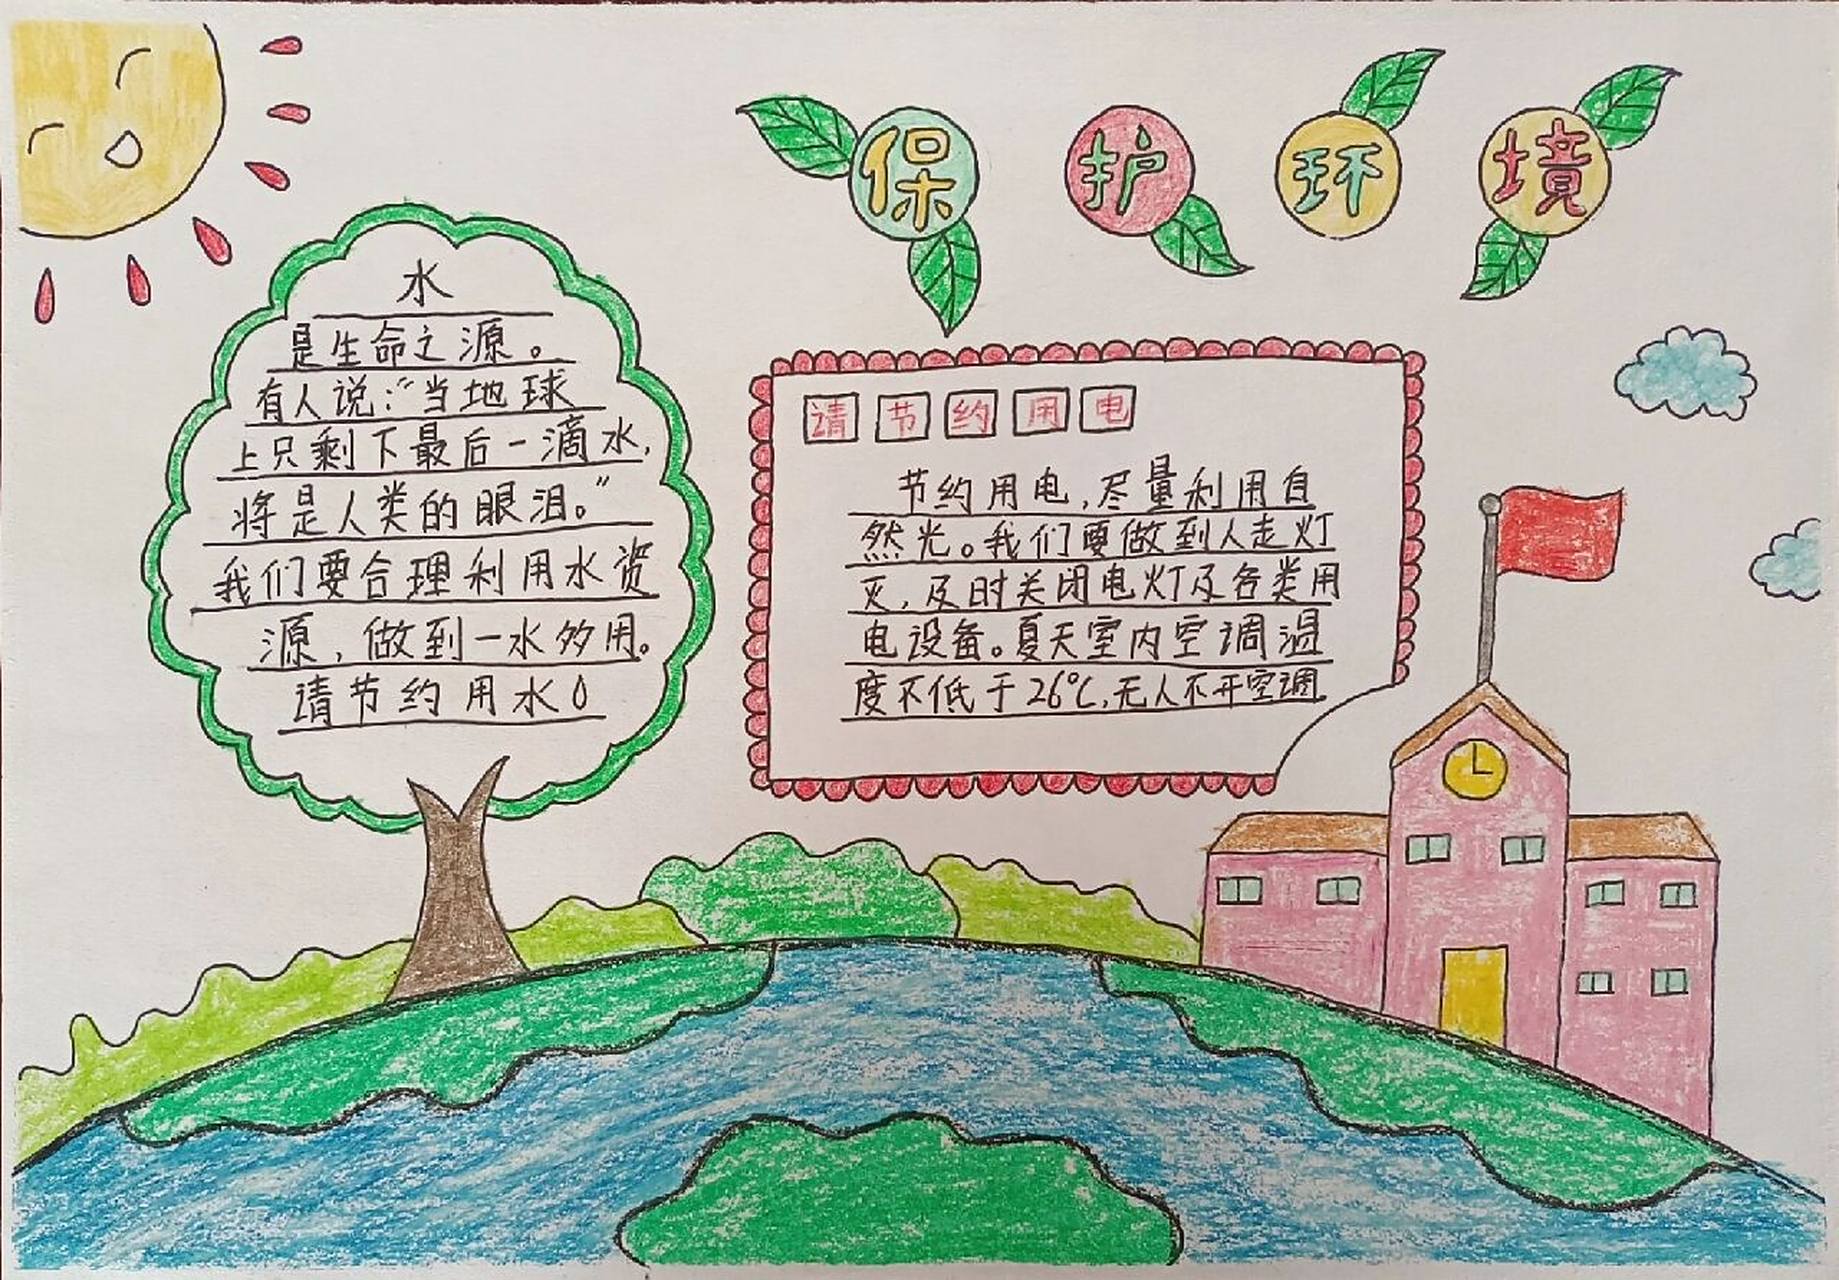 保护环境
水
是生命之源。
有人说：“当地球
上只剩下最后一滴水，
将是人类的眼泪。”
我们要合理利用水资
源，做到一水多用。
请节约用水
请节约用电
节约用电，尽量利用自
然光。我们要做到人走灯
灭，及时关闭电灯及各类用
电设备。夏天室内空调温
度不低于26℃，无人不开空调。